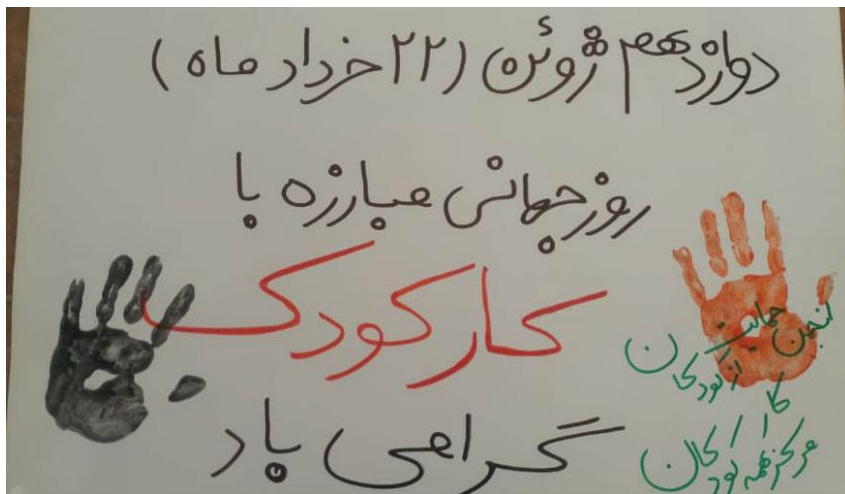 دوازدهم ژوئن (۲۲ خرداد ماه)
روز جهانی مبارزه با
کار کودک
گرامی باد
انجمن حمایت
از کودکان
کار
مرکز همه کودکان